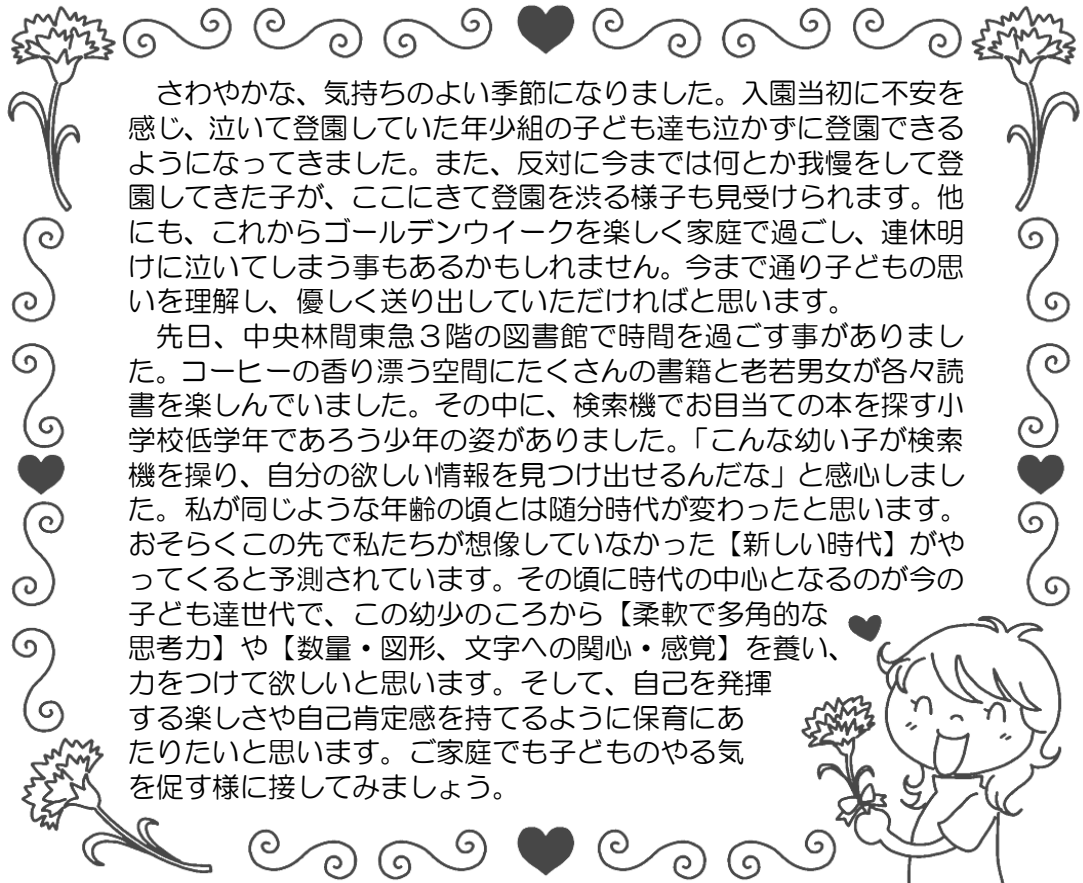 さわやかな、気持ちのよい季節になりました。入園当初に不安を
感じ、泣いて登園していた年少組の子ども達も泣かずに登園できる
ようになってきました。また、反対に今までは何とか我慢をして登
園してきた子が、ここにきて登園を渋る様子も見受けられます。他
にも、これからゴールデンウイークを楽しく家庭で過ごし、連休明
けに泣いてしまう事もあるかもしれません。今まで通り子どもの思
いを理解し、優しく送り出していただければと思います。
先日、中央林間東急３階の図書館で時間を過ごす事がありまし
た。コーヒーの香り漂う空間にたくさんの書籍と老若男女が各々読
書を楽しんでいました。その中に、検索機でお目当ての本を探す小
学校低学年であろう少年の姿がありました。「こんな幼い子が検索
機を操り、自分の欲しい情報を見つけ出せるんだな」と感心しまし
た。私が同じような年齢の頃とは随分時代が変わったと思います。
おそらくこの先で私たちが想像していなかった【新しい時代】がや
ってくると予測されています。その頃に時代の中心となるのが今の
子ども達世代で、この幼少のころから【柔軟で多角的な
思考力】や【数量・図形、文字への関心・感覚】を養い、
力をつけて欲しいと思います。そして、自己を発揮
する楽しさや自己肯定感を持てるように保育にあ
たりたいと思います。ご家庭でも子どものやる気
を促す様に接してみましょう。